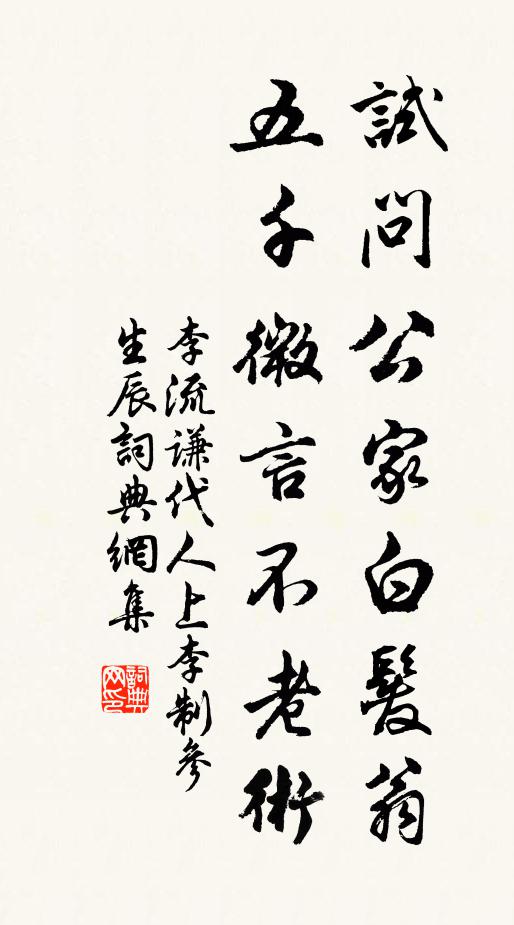 試問公家白髮翁
五千微言不老術
李流謙代人上李制參
生辰詞典網集
詞典网印